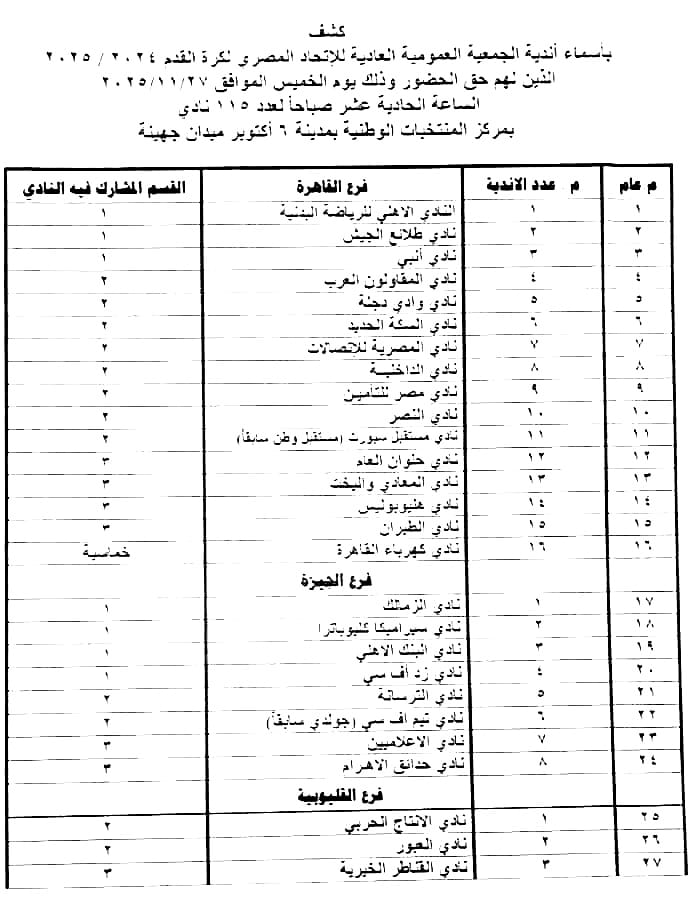 كشف
بأسماء أندية الجمعية العمومية العادية للإتحاد المصري لكرة القدم ٢٠٢٤ / ٢٠٢٥
الذين لهم حق الحضور وذلك يوم الخميس الموافق ٢٠٢٥/١١/٢٧
الساعة الحادية عشر صباحاً لعدد ١١٥ نادي
بمركز المنتخبات الوطنية بمدينة ٦ أكتوبر ميدان جهينة
م عام م . عدد الاندية فرع القاهرة القسم المشارك فيه النادي
١ ١ النادي الاهلي للرياضة البدنية ١
٢ ٢ نادي طلائع الجيش ١
٣ ٣ نادي أنبي ١
٤ ٤ نادي المقاولون العرب ٢
٥ ٥ نادي وادي دجلة ٢
٦ ٦ نادي السكة الحديد ٢
٧ ٧ نادي المصرية للإتصالات ٢
٨ ٨ نادي الداخلية ٢
٩ ٩ نادي مصر للتأمين ٢
١٠ ١٠ نادي النصر ٢
١١ ١١ نادي مستقبل سبورت (مستقبل وطن سابقاً) ٢
١٢ ١٢ نادي حلوان العام ٣
١٣ ١٣ نادي المعادي واليخت ٣
١٤ ١٤ نادي هليوبوليس ٣
١٥ ١٥ نادي الطيران ٣
١٦ ١٦ نادي كهرباء القاهرة خماسية
فرع الجيزة
١٧ ١ نادي الزمالك ١
١٨ ٢ نادي سيراميكا كليوباترا ١
١٩ ٣ نادي البنك الاهلي ١
٢٠ ٤ نادي زد أف سي ١
٢١ ٥ نادي الترسانة ٢
٢٢ ٦ نادي تيم أف سي (جولدي سابقاً) ٢
٢٣ ٧ نادي الاعلاميين ٣
٢٤ ٨ نادي حدائق الاهرام ٣
فرع القليوبية
٢٥ ١ نادي الانتاج الحربي ٢
٢٦ ٢ نادي العبور ٢
٢٧ ٣ نادي القناطر الخيرية ٣